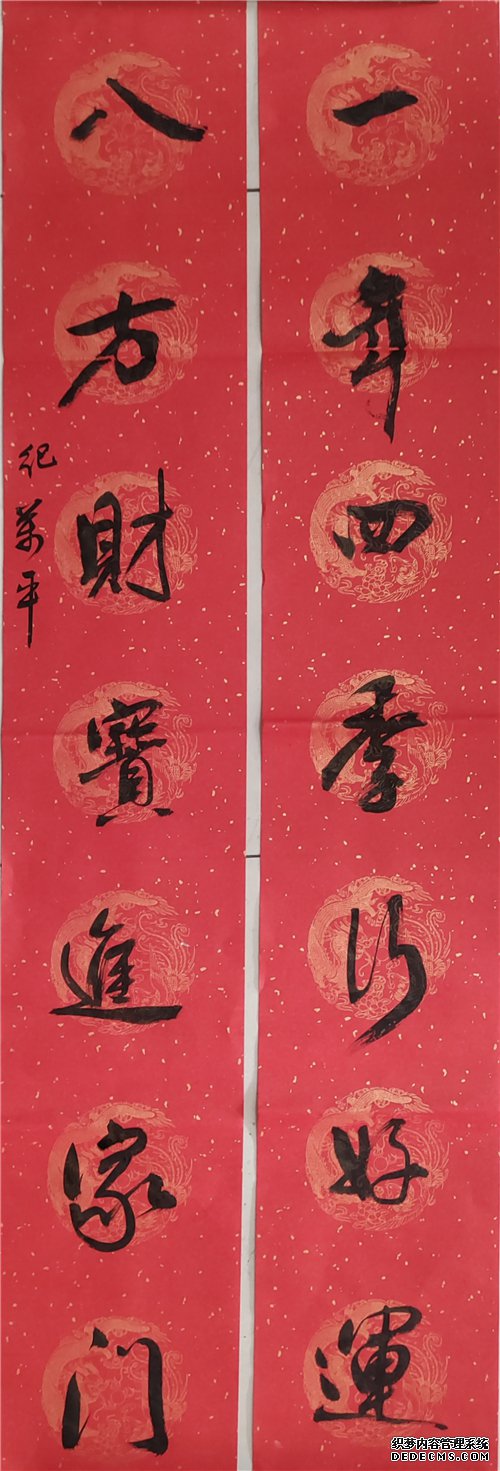 一年四季行好運
八方財寳進家门
纪萬平
织梦内容管理系统
DEDECMS.COM